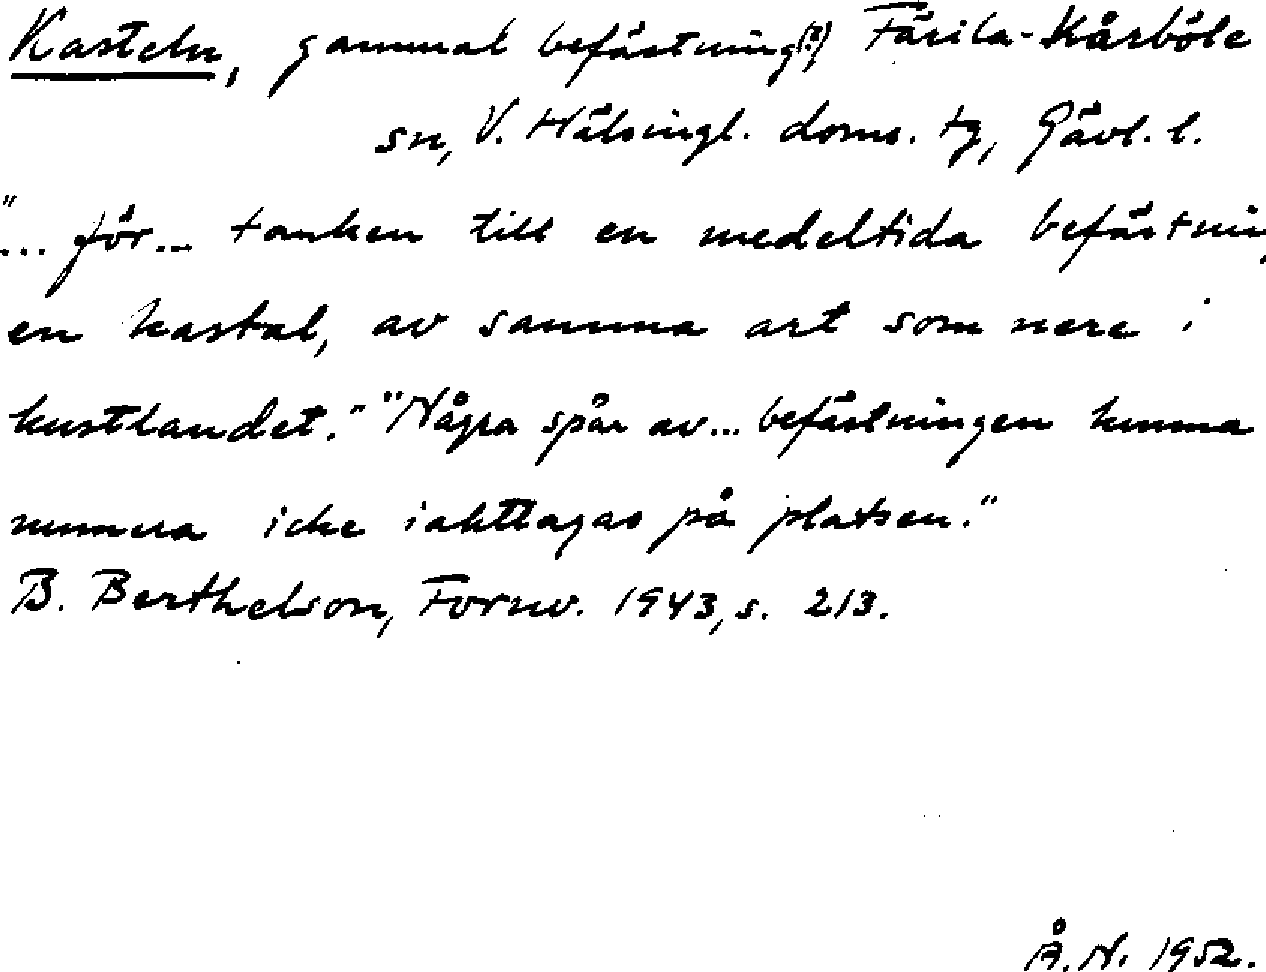 Kasteln, gammal befästning(?) Färila-Kårböle
sn, V. Hälsingl. doms. tg, Gävl. l.
"... för... tanken till en medeltida befästnin
en kastal, av samma art som nere i
kustlandet." "Några spår av... befästningen kunna
numera icke iakttagas på platsen."
B. Berthelson, Fornv. 1943, s. 213.
Å. N. 1952.